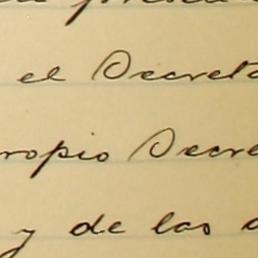 el Decreto
propio Decre
y de las